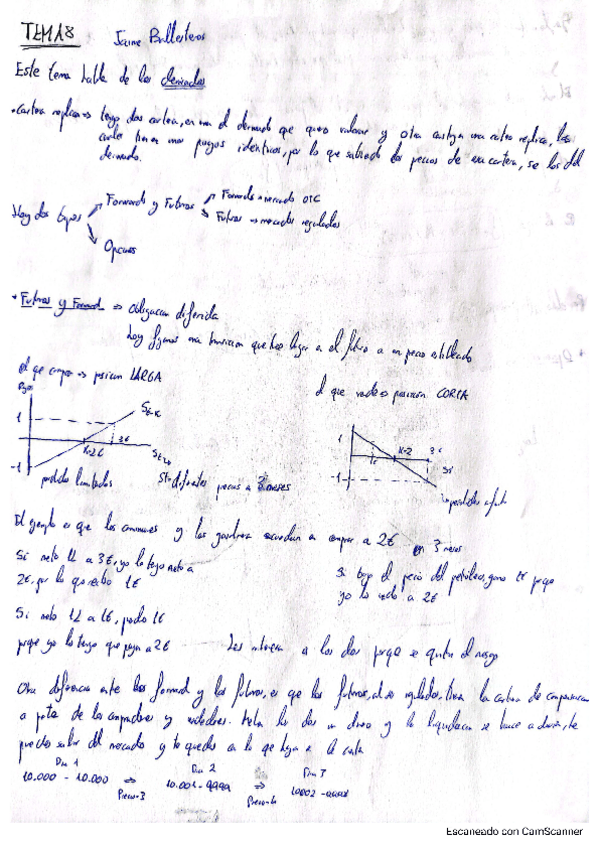 TEMA 8 Jaime Ballesteros
Este tema habla de los derivados
• cartera replica => tengo dos cartera, en una el derivado que quiero valorar y otra una cartera replica, las
cuales tienen unos pagos identicos, por lo que sabiendo los precios de esa cartera, se los del
derivado.
Hay dos tipos
Forwards y Futuros
Forwards => mercado OTC
Futuros => mercados regulados
Opciones
* Futuros y Forward => obligacion diferida
hoy fijamos una transaccion que tiene lugar en el futuro a un precio establecido
el que compra => posicion LARGA
el que vende => posición CORTA
1
-1
K=2€
3€
perdidas limitadas
St = diferentes precios a 3 meses
1
-1
1€
K=2
3€
St
El ejemplo es que los y las gasolinera acuerdan comprar a 2€ en 3 meses
Si meto 1L a 3€, yo lo tengo meto a
2€, por lo que recibo 1€
si baja el precio del petroleo, gano 1€ porque
yo lo vendo a 2€
Si meto 1L a 1€, pierdo 1€
porque yo lo tengo que pagar a 2€
Les interesa a los dos porque se quitan el riesgo
Otra diferencia entre los forward y los futuros, es que los futuros, al ser regulados, tienen la camara de compensacion
a parte de los compradores y vendedores. Meten los dos un dinero y la liquidacion se hace a diario, te
puedes salir del mercado y te quedas con lo que haya en la cuenta
Dia 1
10.000 - 10.000
=>
Precio=3
Dia 2
10.001 - 9999
=>
Precio=4
Dia 3
10002 - 9998
Escaneado con CamScanner